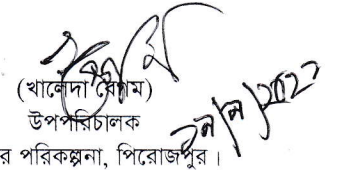 (খালেদা বেগম)
উপপরিচালক
র পরিকল্পনা, পিরোজপুর।